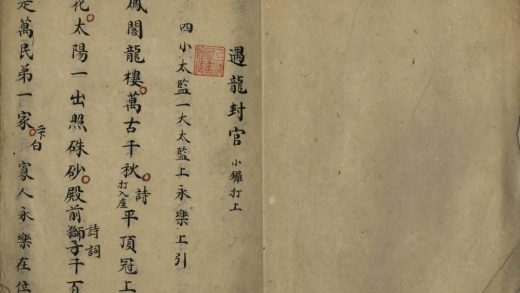 遇龍封官 小鑼打上
四小太監一大太監上永樂上引
鳳閣龍樓萬古千秋 打入座 詩 平頂冠上
花太陽一出照硃砂殿前獅子千百 詩詞
是萬民第一家 下白 寡人永樂在位